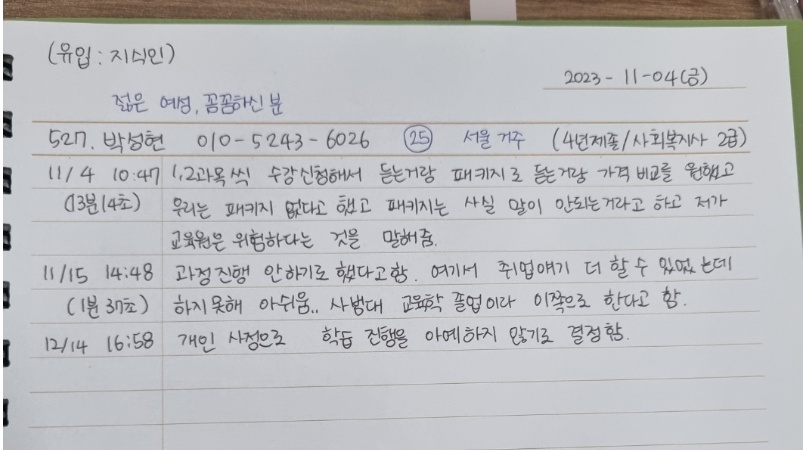 (유입 : 지식인)
2023-11-04(금)
젊은 여성, 꼼꼼하신 분
527. 박성현 010-5243-6026 25 서울 거주 (4년제졸/사회복지사 2급)
11/4 10:47 1,2과목씩 수강신청해서 듣는거랑 패키지로 듣는거랑 가격비교를 원했고
(13분14초) 우리는 패키지 없다고 했고 패키지는 사실 말이 안되는거라고 하고 저가
교육원은 위험하다는 것을 말해줌.
11/15 14:48 과정진행 안하기로 했다고함. 여기서 취업얘기 더 할 수 있었는데
(1분 37초) 하지못해 아쉬움.. 사범대 교육학 졸업이라 이쪽으로 한다고 함.
12/14 16:58 개인 사정으로 학습 진행을 아예하지 않기로 결정함.